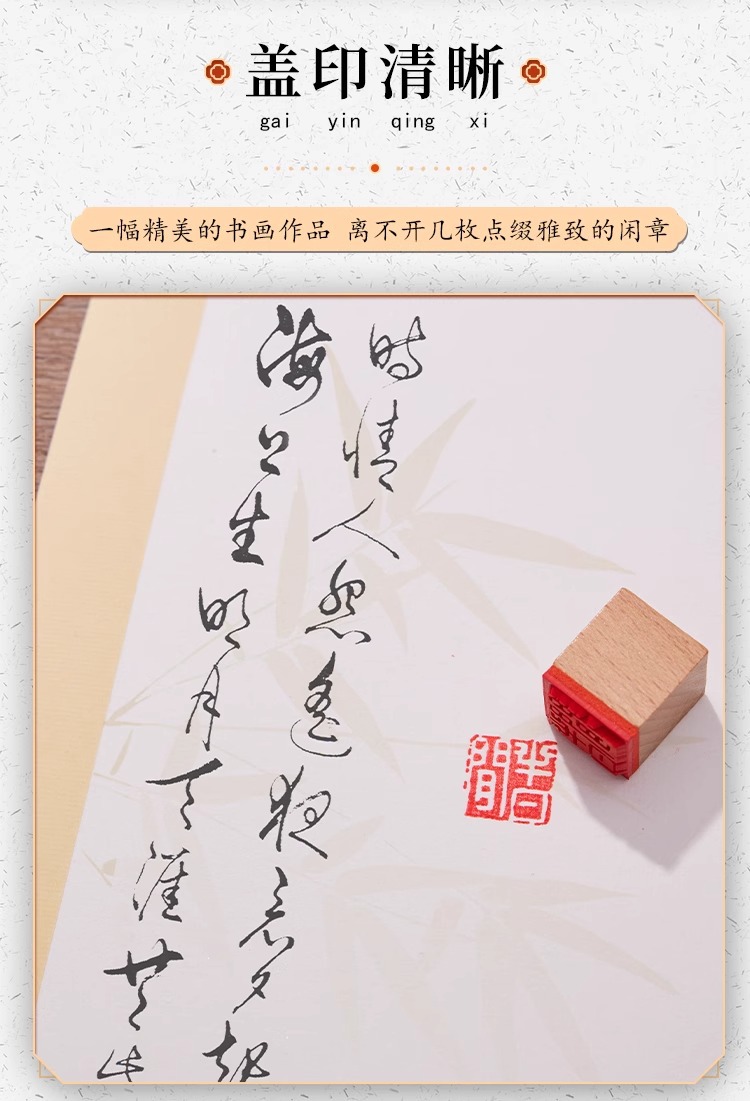 盖印清晰
gai yin qing xi
一幅精美的书画作品 离不开几枚点缀雅致的闲章
海上生明月天涯共此
时情人怨遥夜竟夕起
半日閒